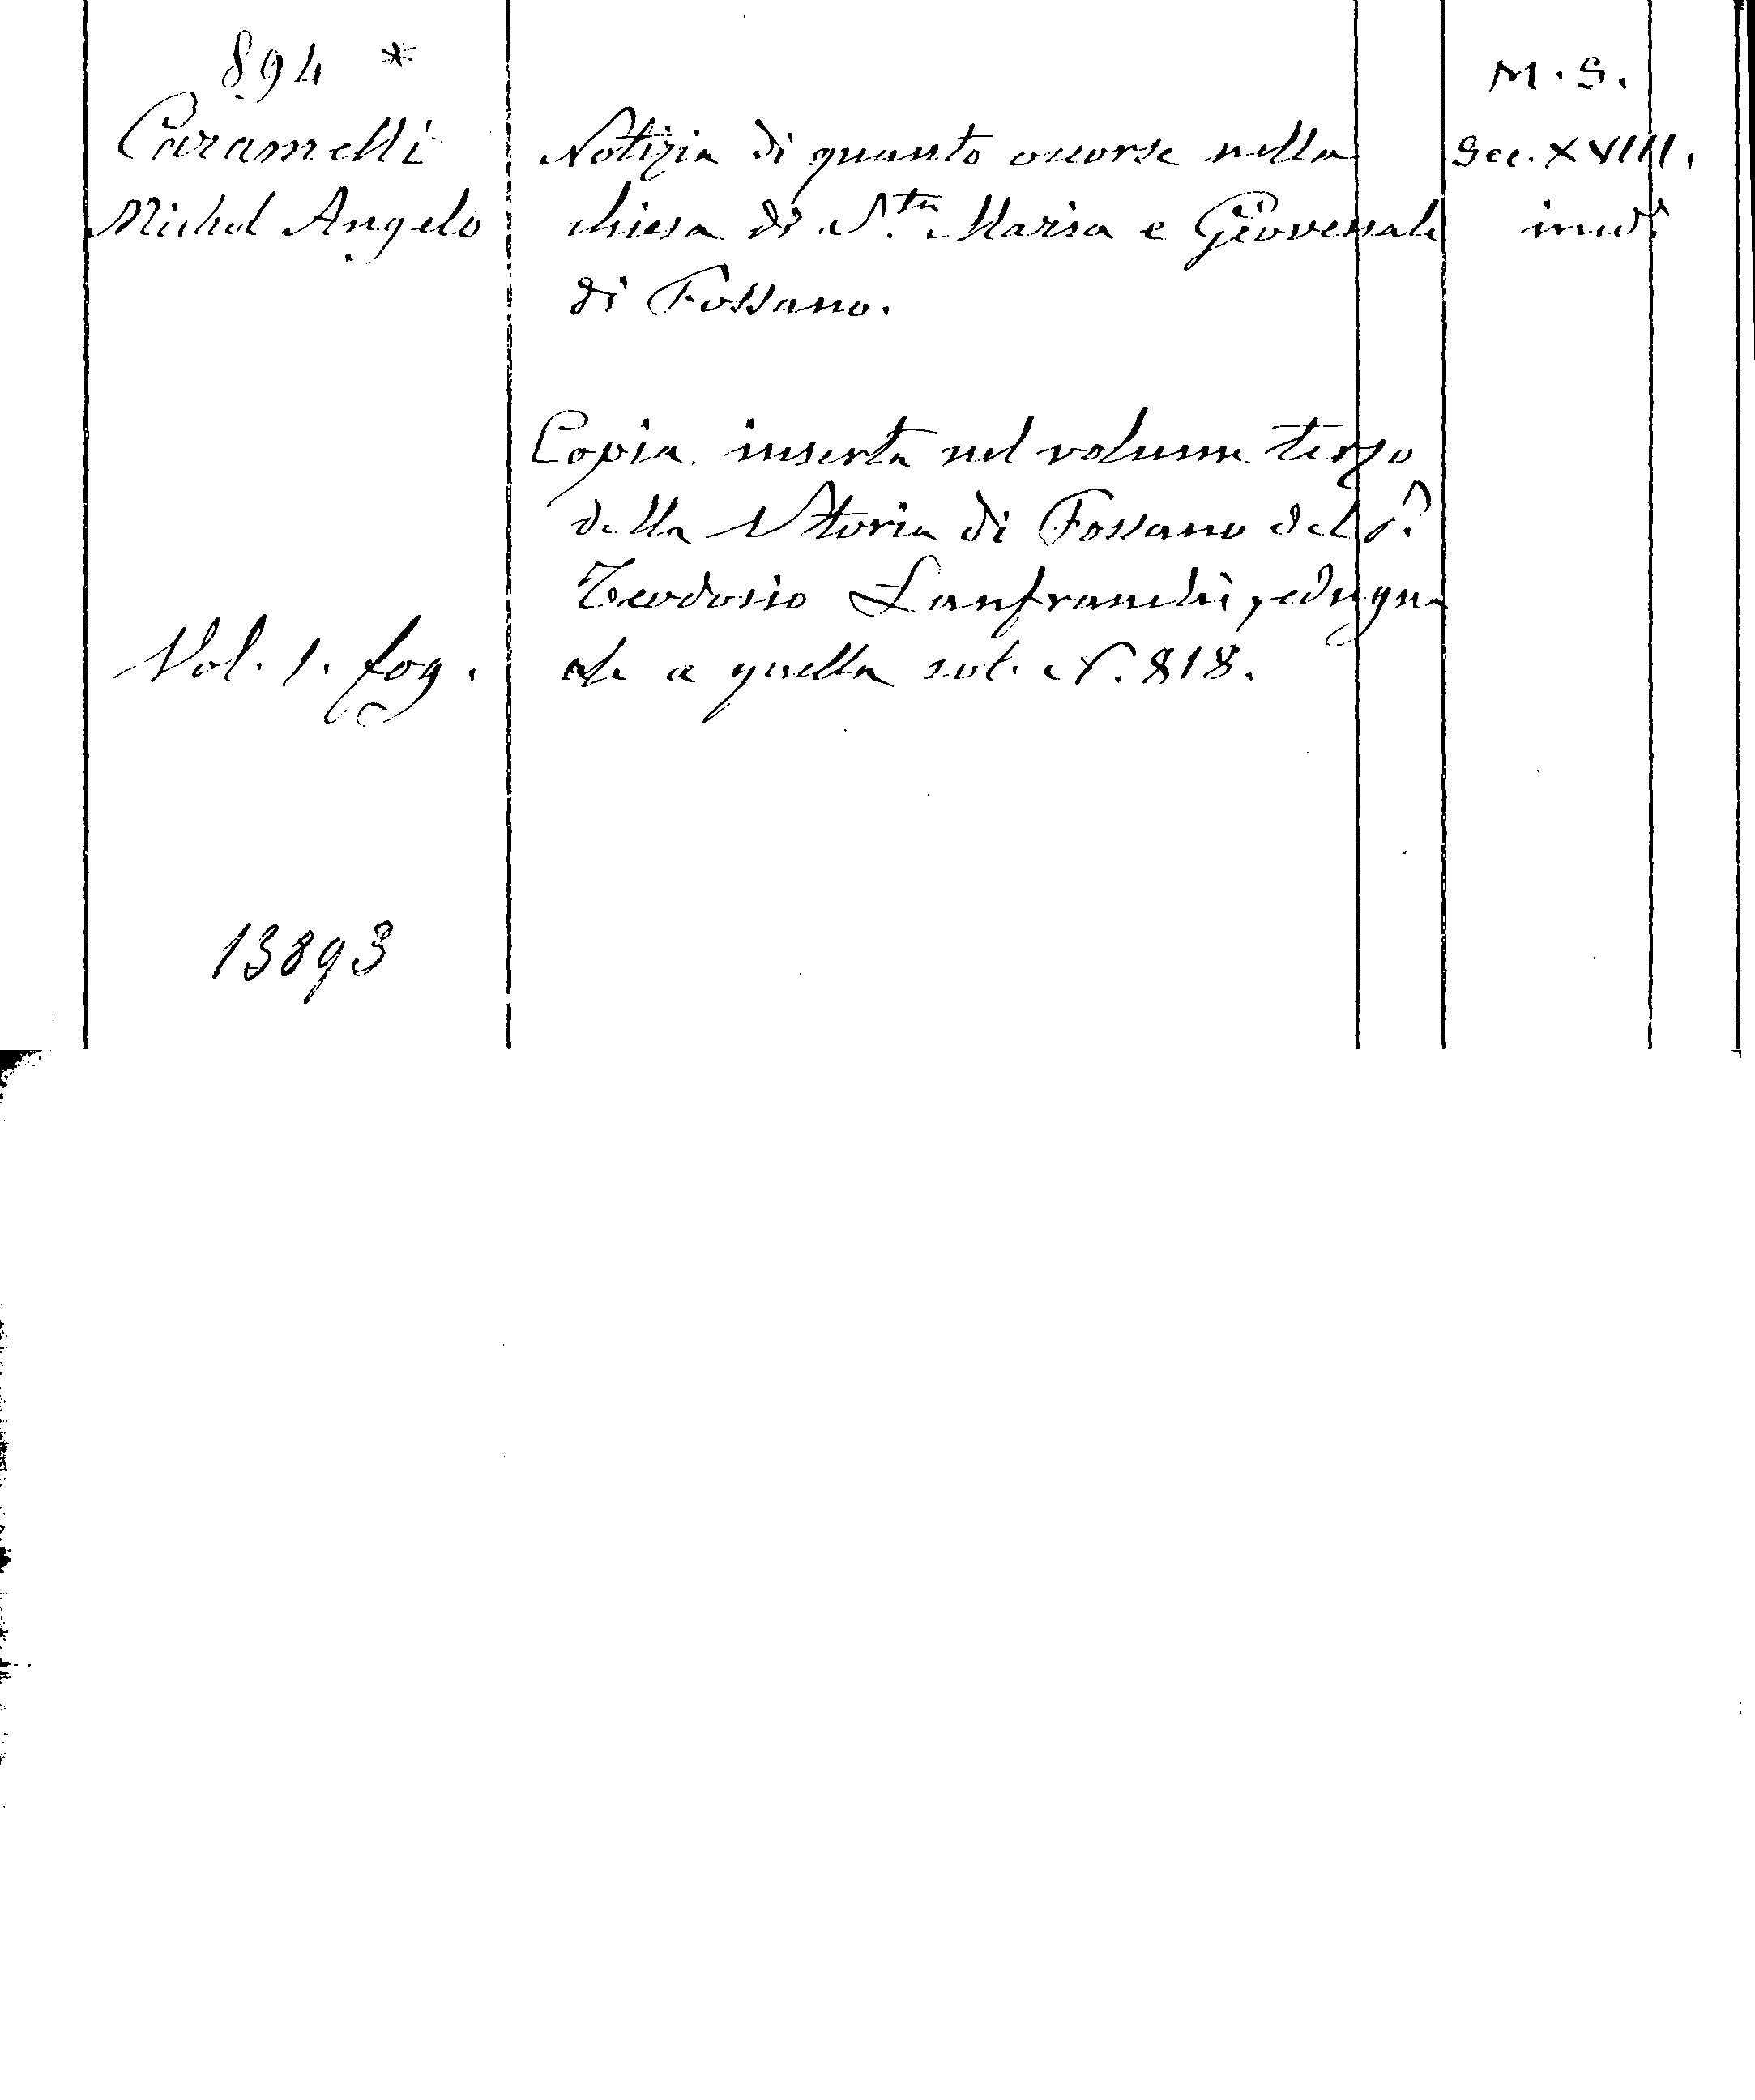 894 *
Caramelli
Michel Angelo
Notizia di quanto occorse nella
chiesa di S.ta Maria e Giovenale
di Fossano.
M. S.
Sec. XVIII.
ined.
Copia inserta nel volume terzo
della Storia di Fossano del P.
Teodosio Lanfranchi, ed ugua
le a quella sot. N. 818.
Vol. 1. fog.
13893